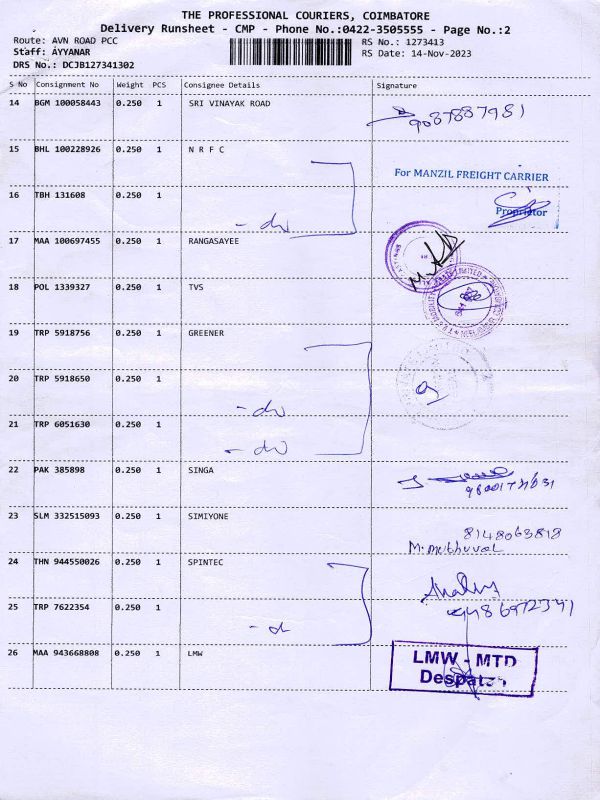 THE PROFESSIONAL COURIERS, COIMBATORE
Delivery Runsheet - CMP - Phone No.:0422-3505555 - Page No.:2
Route: AVN ROAD PCC RS No.: 1273413
Staff: AYYANAR RS Date: 14-Nov-2023
DRS No.: DCJB127341302
S No Consignment No Weight PCS Consignee Details Signature
14 BGM 100058443 0.250 1 SRI VINAYAK ROAD
9087887981
15 BHL 100228926 0.250 1 N R F C
For MANZIL FREIGHT CARRIER
16 TBH 131608 0.250 1
Proprietor
- do
17 MAA 100697455 0.250 1 RANGASAYEE
18 POL 1339327 0.250 1 TVS
19 TRP 5918756 0.250 1 GREENER
20 TRP 5918650 0.250 1
- do
21 TRP 6051630 0.250 1
- do
22 PAK 385898 0.250 1 SINGA
23 SLM 332515093 0.250 1 SIMIYONE
8148063818
24 THN 944550026 0.250 1 SPINTEC
25 TRP 7622354 0.250 1
- do
26 MAA 943668808 0.250 1 LMW
LMW - MTD
Despatch